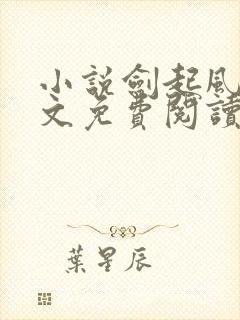 小說劍起風
文免費閱讀
葉星辰